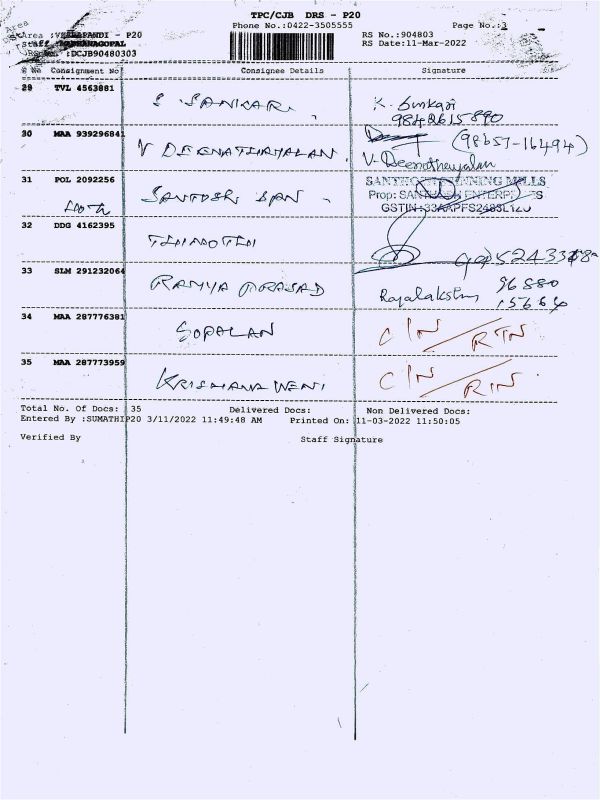 TPC/CJB DRS - P20
Phone No.:0422-3505555 Page No.:3
Area : - P20 RS No.:904803
Staff RS Date:11-Mar-2022
:DCJB90480303
Consignment No Consignee Details Signature
29 TVL 4563881 S SANKAR. K. Sunkari
9842615890
30 MAA 939296841 V DEENATHAYALAN. (98657-16494)
V. Deenathayalan
31 POL 2092256 SANTOSH SPN. SANTHOSH SPINNING MILLS
Prop: SANTHOSH ENTERPRISES
GSTIN :
32 DDG 4162395 TIIMOTHI
33 SLM 291232064 RAMYA PRASAD Rajalakshmi 96880
15664
34 MAA 287776381 GOPALAN C/N/RTN
35 MAA 287773959 KRISHANA WENI C/N/RTN.
Total No. Of Docs: 35 Delivered Docs: Non Delivered Docs:
Entered By :SUMATHIP20 3/11/2022 11:49:48 AM Printed On: 11-03-2022 11:50:05
Verified By Staff Signature